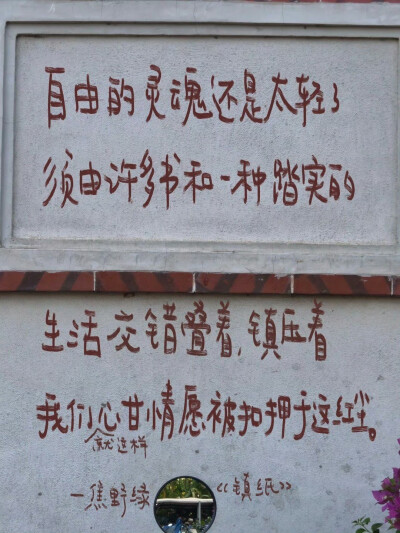 自由的灵魂还是太轻了
须由许多书和一种踏实的
生活交错叠着，镇压着
我们心甘情愿被扣押于这红尘。
就这样
一焦野绿 《镇纸》